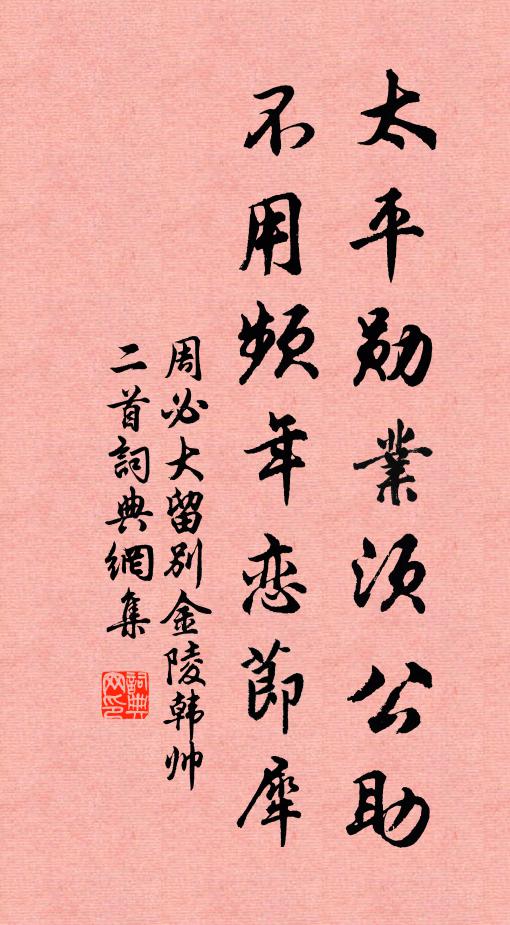 太平勋業須公助
不用頻年恋節犀
周必大留别金陵韩帅
二首詞典網集
詞典
网印